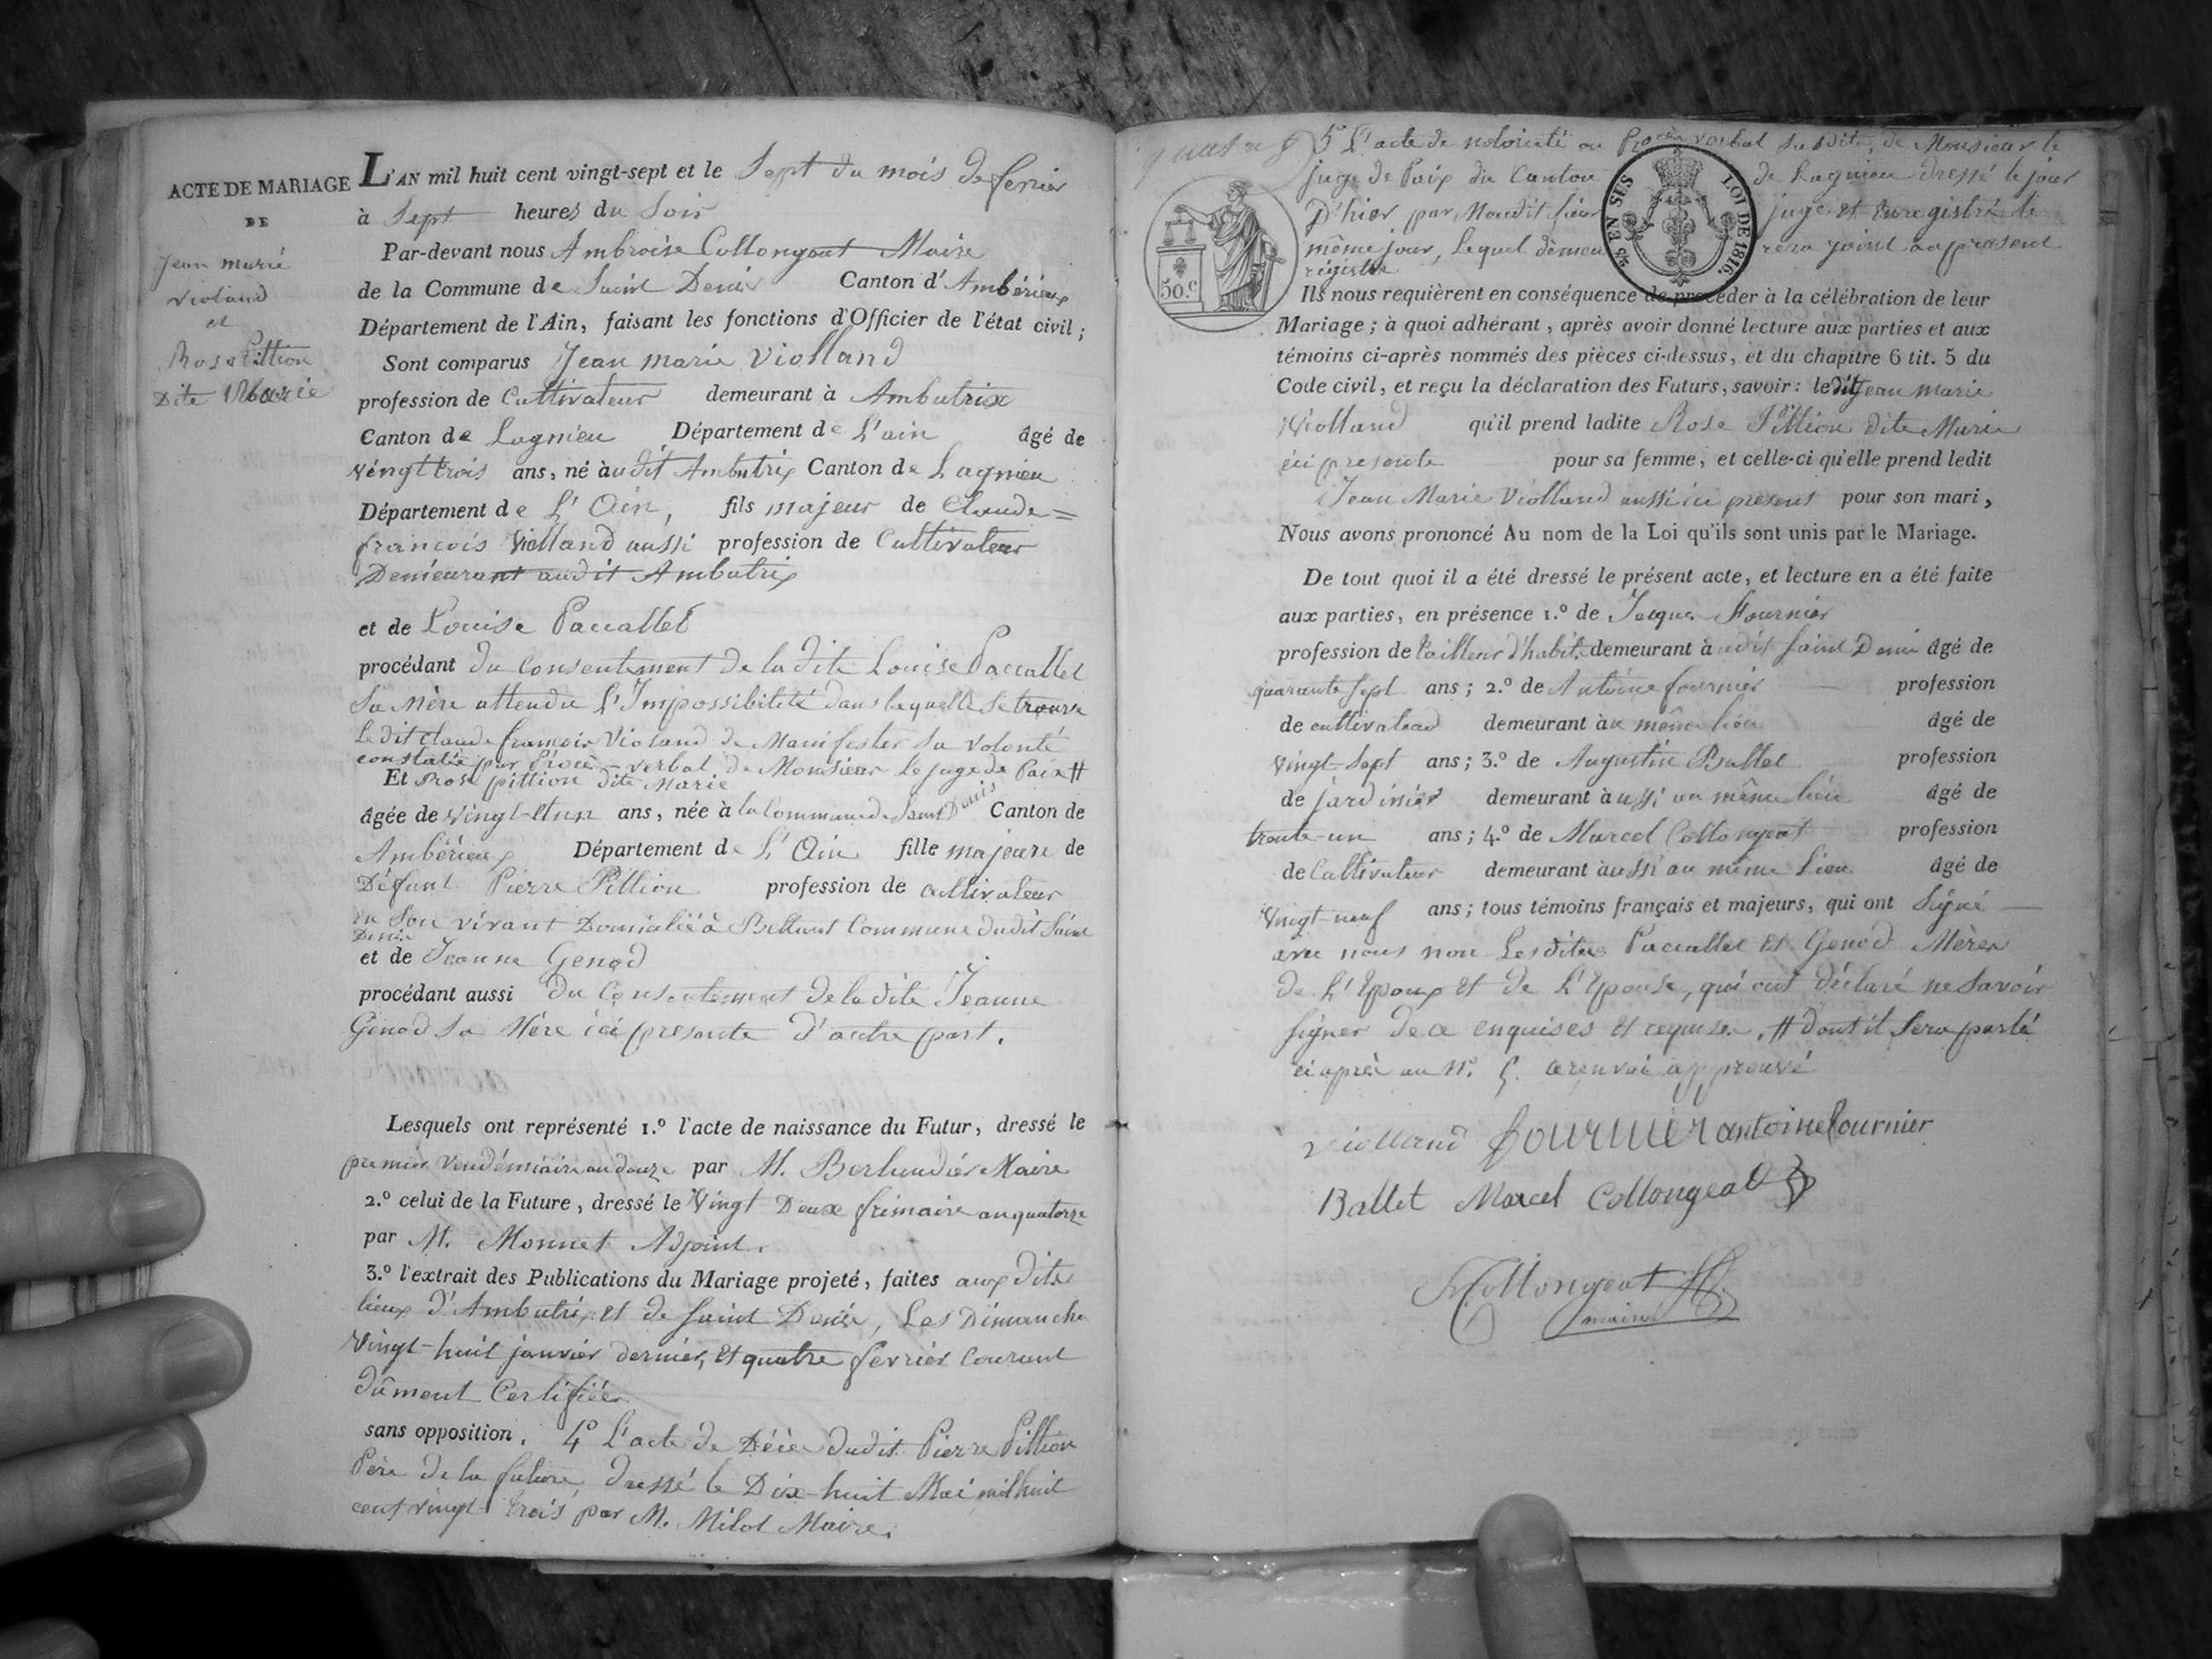 ACTE DE MARIAGE
DE
Jean marie
violand
et
Rose Pittion
Dite Marie
L'AN mil huit cent vingt-sept et le Sept du mois de fevrier
à Sept heures du Soir
Par-devant nous Ambroise Collongeat Maire
de la Commune de Saint Denis Canton d'Ambérieux
Département de l'Ain, faisant les fonctions d'Officier de l'état civil;
Sont comparus Jean marie Violland
profession de Cultivateur demeurant à Ambutrix
Canton de Lagnieu Département de L'ain âgé de
vingt trois ans, né àudit Ambutrix Canton de Lagnieu
Département de L'Ain, fils majeur de Claude=
françois Violland aussi profession de Cultivateur
Demeurant audit Ambutrix
et de Louise Paccallet
procédant du Consentement de la dite Louise Paccallet
Sa Mère attendu L'Impossibilité dans laquelle Se trouve
Le dit claude françois Violand de Manifester Sa volonté
constatée par Procès-verbal de Monsieur le juge de Paix #
Et Rose pittion dite Marie
âgée de Vingt-etun ans, née à la Commune de Saint Denis Canton de
Ambérieux Département de L'Ain fille majeure de
Défunt Pierre Pittion profession de cultivateur
en Son vivant Domicilié à Commune dudit Saint
Denis
et de Jeanne Genod
procédant aussi du Consentement de ladite Jeanne
Genod Sa Mère ici presente d'autre part.
Lesquels ont représenté 1.º l'acte de naissance du Futur, dressé le
premier Vendémiaire an douze par M. Berlioudier Maire
2.º celui de la Future, dressé le Vingt Deux frimaire an quatorze
par M. Monnet Adjoint.
3.º l'extrait des Publications du Mariage projeté, faites aux dits
lieux d'Ambutrix et de Saint Denis, Les Dimanche
Vingt-huit janvier dernier, et quatre fevrier Courant
dûment Certifiées
sans opposition. 4º L'acte de Décès dudit Pierre Pittion
Père de la future, dressé le Dix-huit Mai mil huit
cent vingt trois par M. Milot Maire.
5º L'acte de notoriété ou Procès verbal Susdite, de Monsieur le
juge de Paix du Canton de Lagnieu dressé le jour
D'hier par Mondit Sieur juge et Enregistré le
même jour, Lequel demeurera joint au present
régistre
50.c
25 EN SUS
LOI DE 1816.
Ils nous requièrent en conséquence de procéder à la célébration de leur
Mariage; à quoi adhérant, après avoir donné lecture aux parties et aux
témoins ci-après nommés des pièces ci-dessus, et du chapitre 6 tit. 5 du
Code civil, et reçu la déclaration des Futurs, savoir: ledit Jean Marie
Violland qu'il prend ladite Rose Pittion dite Marie
ici presente pour sa femme, et celle-ci qu'elle prend ledit
Jean Marie Violland aussi ici present pour son mari,
Nous avons prononcé Au nom de la Loi qu'ils sont unis par le Mariage.
De tout quoi il a été dressé le présent acte, et lecture en a été faite
aux parties, en présence 1.º de Jacques Fournier
profession de tailleur d'habit demeurant àudit Saint Denis âgé de
quarante Sept ans; 2.º de Antoine fournier profession
de cultivateur demeurant àu même lieu âgé de
vingt-Sept ans; 3.º de Augustin Ballet profession
de jardinier demeurant àussi au même lieu âgé de
trente-un ans; 4.º de Marcel Collongeat profession
de Cultivateur demeurant àussi au même Lieu âgé de
Vingt-neuf ans; tous témoins français et majeurs, qui ont Signé
avec nous non Lesdites Paccallet et Genod Mères
de L'Epoux et de L'Epouse, qui ont déclaré ne Savoir
Signer de ce enquises et requises. # dont il Sera parlé
ci après au Nº. 5. renvoi approuvé
violland fournier antoine fournier
Ballet Marcel Collongeat
Collongeat
maire